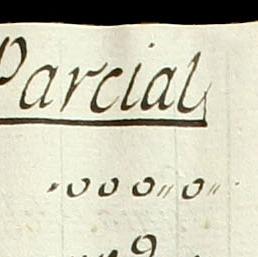 Parcial
"000"0"